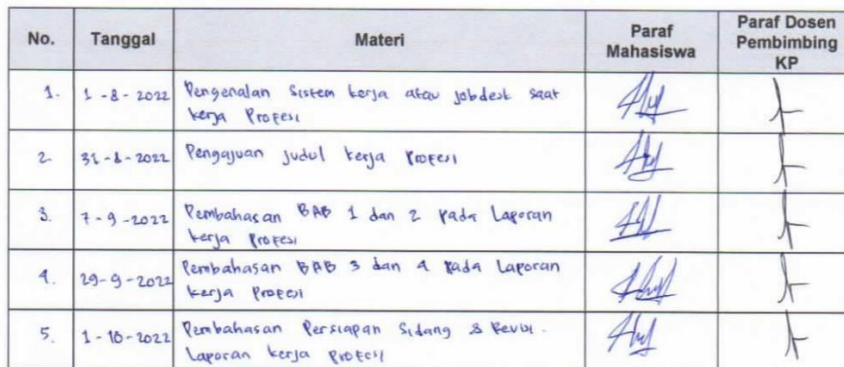 No. Tanggal Materi Paraf Mahasiswa Paraf Dosen Pembimbing KP
1. 1 - 8 - 2022 Pengenalan Sistem kerja atau jobdesk saat
kerja Profesi
2. 31 - 8 - 2022 Pengajuan judul kerja Profesi
3. 7 - 9 - 2022 Pembahasan BAB 1 dan 2 pada Laporan
kerja Profesi
4. 29 - 9 - 2022 Pembahasan BAB 3 dan 4 pada Laporan
kerja Profesi
5. 1 - 10 - 2022 Pembahasan Persiapan Sidang & Revisi
Laporan kerja Profesi